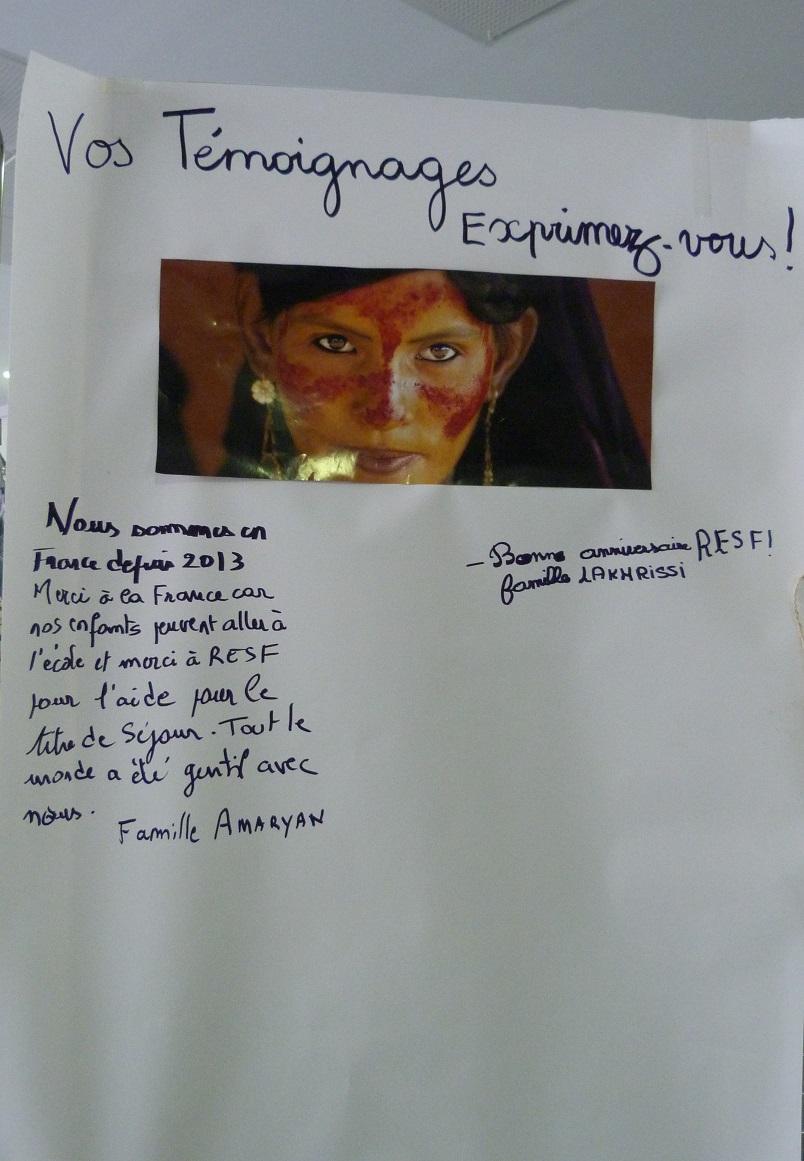 Vos Témoignages
Exprimez-vous!
Nous sommes en
France depuis 2013
Merci à la France car
nos enfants peuvent aller à
l'école et merci à RESF
pour l'aide pour le
titre de Séjour. Tout le
monde a été gentil avec
nous.
Famille AMARYAN
- Bonne anniversaire RESF!
famille LAKHRISSI